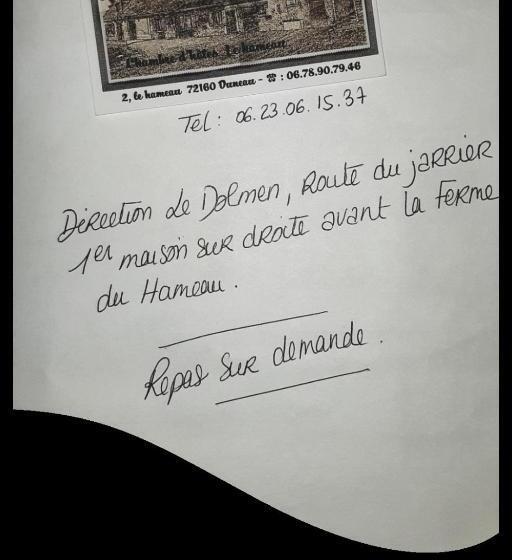 Chambre d'hôtes Le hameau
2, le hameau 72160 Duneau - ☎ : 06.78.90.79.46
Tel : 06.23.06.15.37
Direction Le Dolmen, Route du jarrier
1er maison sur droite avant la ferme
du Hameau.
Repas sur demande.